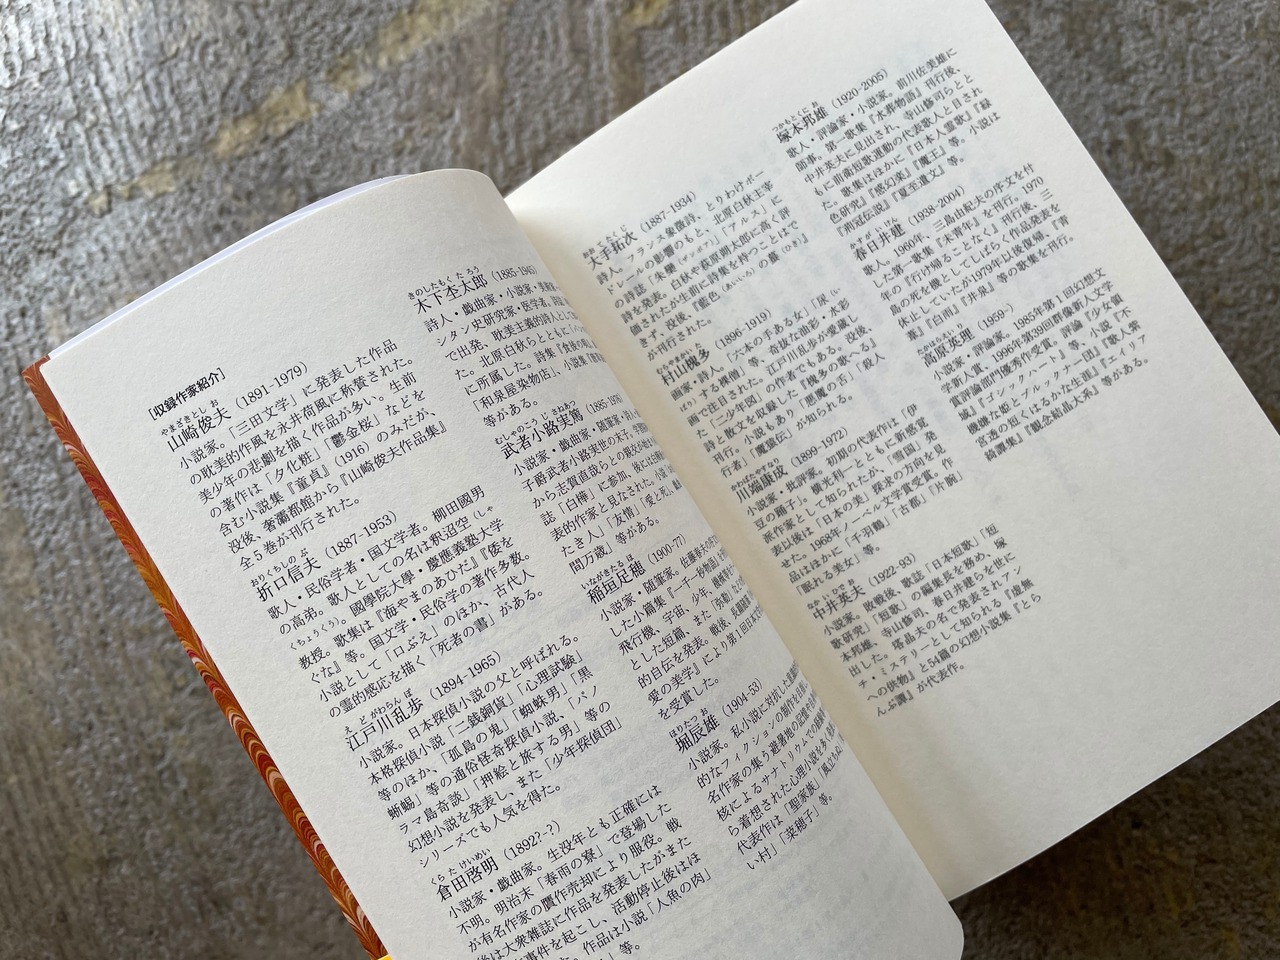 ［収録作家紹介］
やまざきとしお
山崎俊夫（1891-1979）
小説家。「三田文学」に発表した作品
の耽美的作風を永井荷風に称賛された。
美少年の悲劇を描く作品が多い。生前
の著作は「夕化粧」「鬱金桜」などを
含む小説集『童貞』（1916）のみだが、
没後、奢灞都館から『山崎俊夫作品集』
全5巻が刊行された。
おりくちしのぶ
折口信夫（1887-1953）
歌人・民俗学者・国文学者。柳田國男
の高弟。歌人としての名は釈迢空（しゃ
くちょうくう）。國學院大學・慶應義塾大学
教授。歌集は『海やまのあひだ』『倭を
ぐな』等。国文学・民俗学の著作多数。
小説として「口ぶえ」のほか、古代人
の霊的感応を描く「死者の書」がある。
えどがわらんぽ
江戸川乱歩（1894-1965）
小説家。日本探偵小説の父と呼ばれる。
本格探偵小説「二銭銅貨」「心理試験」
等のほか、「孤島の鬼」「蜘蛛男」「黒
蜥蜴」等の通俗怪奇探偵小説、「パノ
ラマ島奇談」「押絵と旅する男」等の
幻想小説を発表し、また「少年探偵団」
シリーズでも人気を得た。
くらたけいめい
倉田啓明（1892?-?）
小説家・戯曲家。生没年とも正確には
不明。明治末「春雨の寮」で登場した
が有名作家の贋作売却により服役。戦
後は大衆雑誌に作品を発表したがまた
事件を起こし、活動停止後はほ
作品は小説「人魚の肉」
等。
きのしたもくたろう
木下杢太郎（1885-1945）
詩人・戯曲家・小説家・美術
シタン史研究家・医学者。詩
で出発、耽美主義的詩人として
た。北原白秋らとともに「パ
に所属した。詩集『食後の唄』
「和泉屋染物店」、小説集『唐
等がある。
むしゃのこうじさねあつ
武者小路実篤（1885-
小説家・戯曲家・随筆家・詩人
子爵武者小路実世の末子。学習
から志賀直哉らとの
誌「白樺」に参加、後に白樺
表的作家と見なされた。小説
たき人」「友情」「愛と死」
間万歳」等がある。
いながきたるほ
稲垣足穂（1900-77）
小説家・随筆家。佐藤春夫の序
した小篇集『一千一秒物語』
飛行機、宇宙、少年、機械等
とした短篇、また「弥勒」など
的自伝を発表。戦後、長篇随筆
愛の美学』により第1回日本文
を受賞した。
ほりたつお
堀辰雄（1904-53）
小説家。私小説に対抗した意識
的なフィクションの制作を目指
名作家の集う避暑地の記憶や
核によるサナトリウムでの体験
ら着想された心理小説を多く
代表作は「聖家族」「風立ちぬ」
い村」「菜穂子」等。
おおてたくじ
大手拓次（1887-1934）
詩人。フランス象徴詩、とりわけボー
ドレールの影響のもと、北原白秋主宰
の詩誌「朱欒（ザンボア）」「アルス」に
詩を発表。白秋や萩原朔太郎に高く評
価されたが生前に詩集を持つことはで
きず、没後、『藍色（あいいろ）の蟇（ひき）』
が刊行された。
むらやまかいた
村山槐多（1896-1919）
画家・詩人。「六本の手ある女」「尿（い
ばり）する裸僧」等、奇抜な油彩・水彩
画で注目された。江戸川乱歩が愛蔵し
た「二少年図」の作者でもある。没後、
詩と散文を収録した『槐多の歌へる』
刊行。小説もあり「悪魔の舌」「殺人
行者」「魔猿伝」が知られる。
かわばたやすなり
川端康成（1899-1972）
小説家・批評家。初期の代表作は「伊
豆の踊子」。横光利一とともに新感覚
派作家として知られたが、「雪国」発
表以後は「日本の美」探求の方向を見
せた。1968年ノーベル文学賞受賞。作
品はほかに「千羽鶴」「古都」「片腕」
「眠れる美女」等。
なかいひでお
中井英夫（1922-93）
小説家。敗戦後、歌誌「日本短歌」「短
歌研究」「短歌」の編集長を務め、塚
本邦雄、寺山修司、春日井建らを世に
出した。塔晶夫の名で発表されたアン
チ・ミステリーとして知られる『虚無
への供物』と54篇の幻想小説集『とら
んぷ譚』が代表作。
つかもとくにお
塚本邦雄（1920-2005）
歌人・評論家・小説家。前川佐美雄に
師事。第一歌集『水葬物語』刊行後、
中井英夫に見出され、寺山修司らとと
もに前衛短歌運動の代表歌人と目され
た。歌集はほかに『日本人霊歌』『緑
色研究』『感幻楽』『魔王』等。小説は
『紺冠伝説』『夏至遺文』等。
かすがいけん
春日井建（1938-2004）
歌人。1960年、三島由紀夫の序文を付
した第一歌集『未青年』を刊行。1970
年の『行け帰ることなく』刊行後、三
島の死を機としてしばらく作品発表を
休止していたが1979年以後復帰、『青
葦』『白雨』『井泉』等の歌集を刊行。
たかはらえいり
高原英理（1959-）
小説家・評論家。1985年第1回幻想文
学新人賞、1996年第39回群像新人文学
賞評論部門優秀作受賞。評論『少女領
域』『ゴシックハート』等、小説『不
機嫌な姫とブルックナー団』『歌人紫
宮透の短くはるかな生涯』『エイリア
綺譚集』『観念結晶大系』等がある。